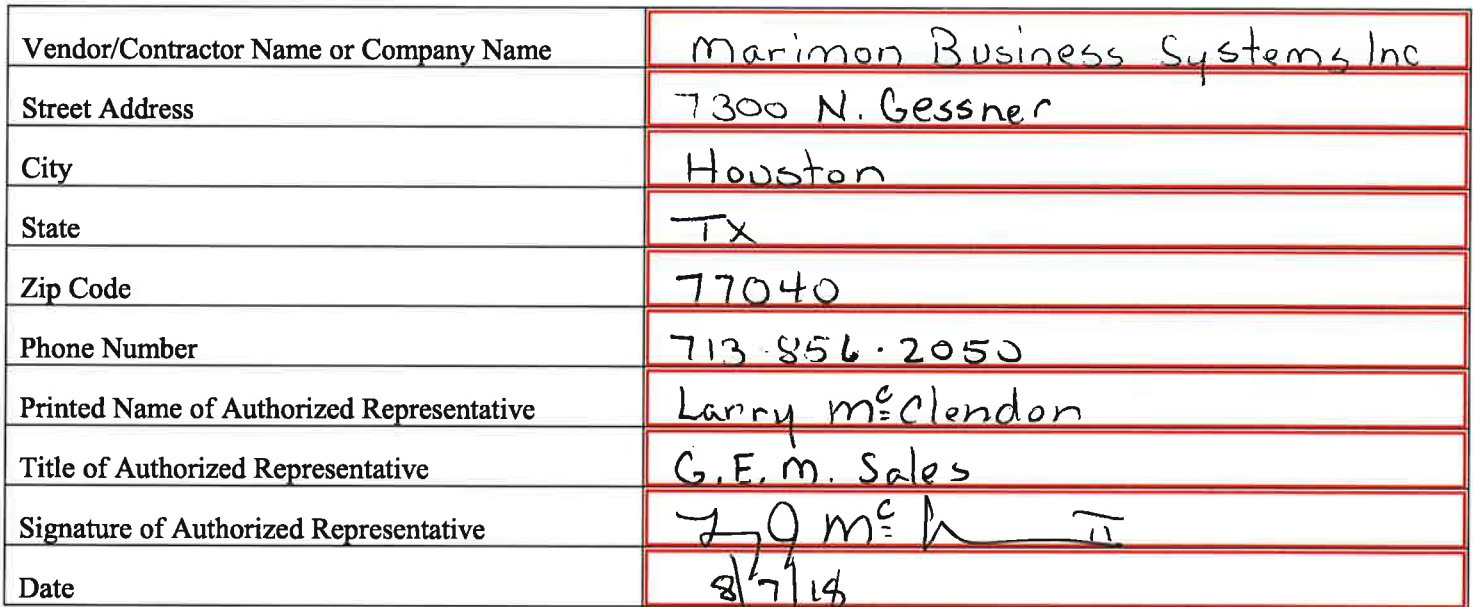 Vendor/Contractor Name or Company Name Marimon Business Systems Inc
Street Address 7300 N. Gessner
City Houston
State TX
Zip Code 77040
Phone Number 713.856.2050
Printed Name of Authorized Representative Larry McClendon
Title of Authorized Representative G.E.M. Sales
Signature of Authorized Representative
Date 8/7/18